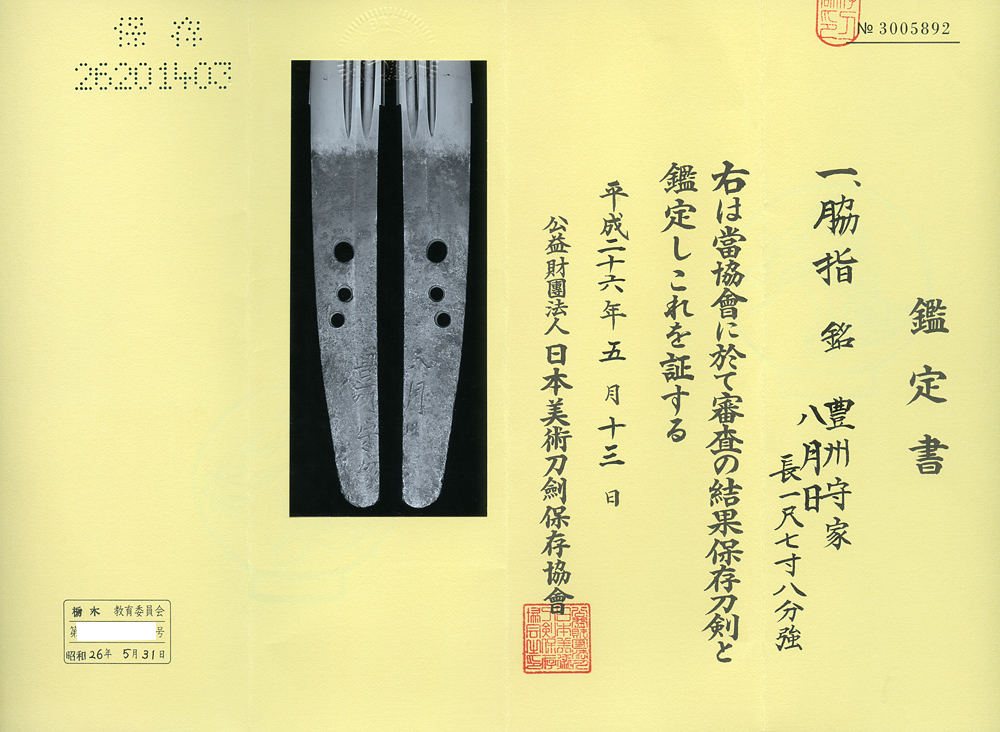 № 3005892
鑑定書
一、脇指 銘 豊州守家
八月日
長一尺七寸八分強
右は當協會に於て審査の結果保存刀剣と
鑑定しこれを証する
平成二十六年五月十三日
公益財團法人日本美術刀劍保存協會
保存
26201403
栃木 教育委員会
第 号
昭和26年 5月31日